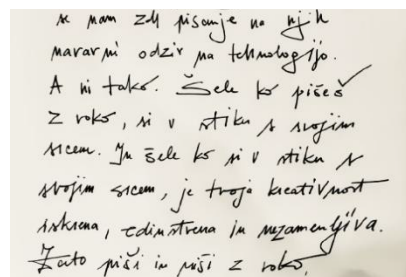 se nam zdi pisanje na njih
naravni odziv na tehnologijo.
A ni tako. Šele ko pišeš
z roko, si v stiku s svojim
srcem. In šele ko si v stiku s
svojim srcem, je tvoja kreativnost
iskrena, edinstvena in nezamenljiva.
Zato piši in piši z roko.